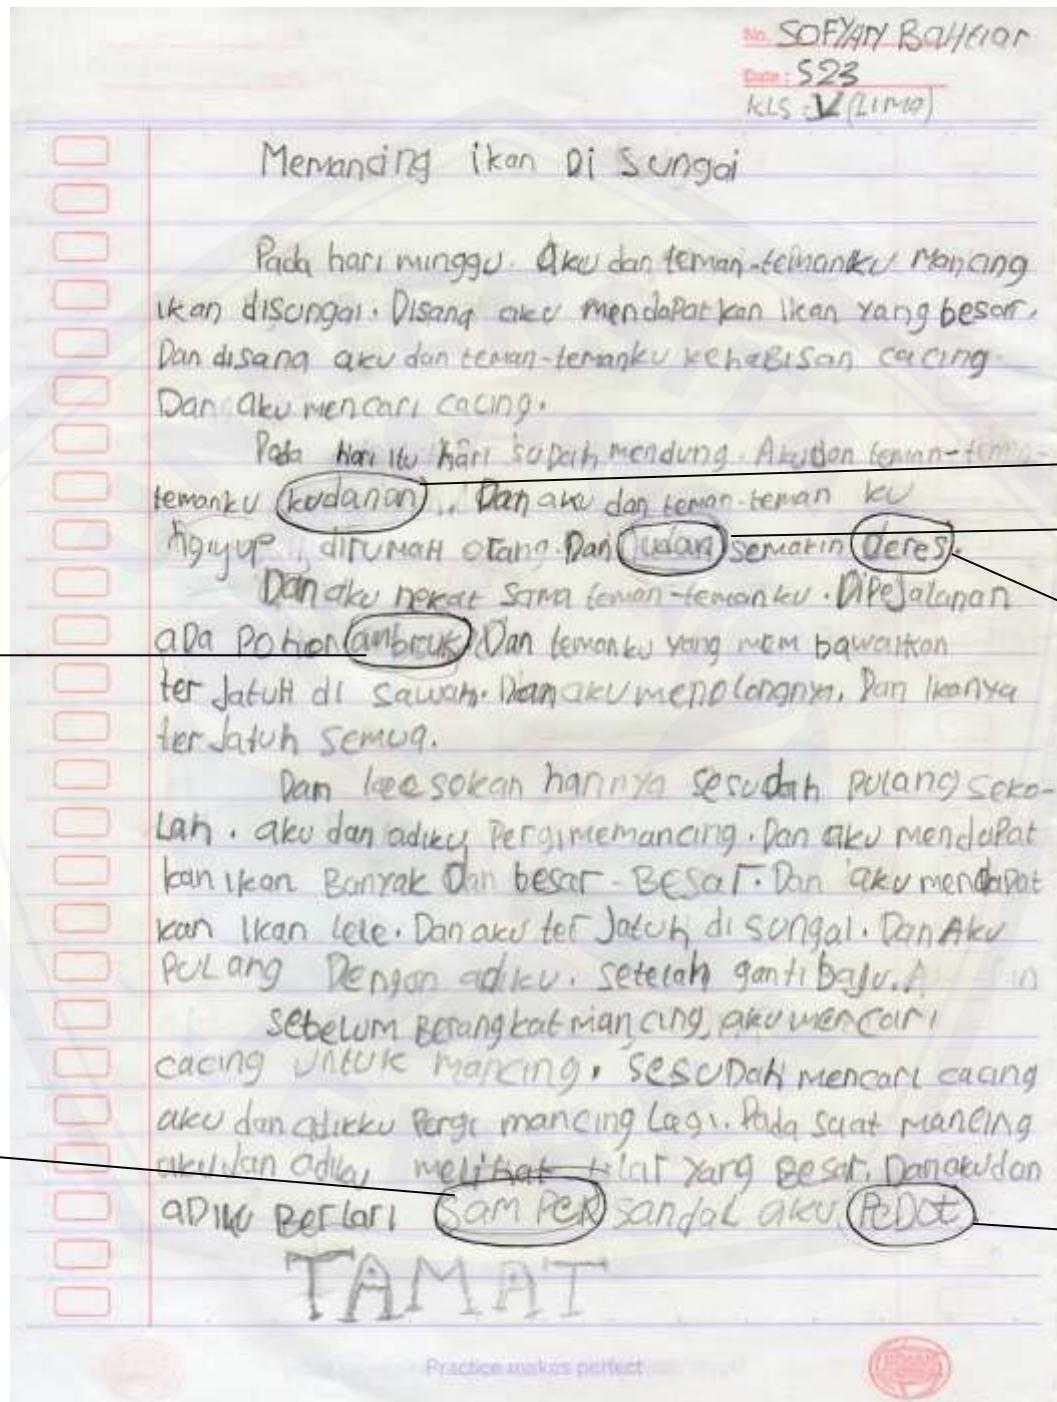 No. SOFYAN BaHtiar
Date : S23
KLS : V (LIMA)
Memancing ikan Di Sungai
Pada hari minggu. Aku dan teman-temanku Mancing
ikan disungai. Disana aku mendaPatkan Ikan Yang besar.
Dan disana aku dan teman-temanku kehaBisan cacing.
Dan aku mencari cacing.
Pada Hari itu hari suDah mendung. Aku dan teman-
temanku kudanan. Dan aku dan teman-teman ku
ngiyup, dirumaH orang. Dan udan semakin deres.
Dan aku nekat sama teman-teman ku. DiPeJalanan
aDa PoHon ambruk Dan temanku yang mem bawaIkan
ter JatuH di sawah. Dan aku menolongnya. Dan Ikanya
ter Jatuh semua.
Dan keesokan harinnya sesudah pulang seko-
Lah. aku dan adiku Pergi memancing. Dan aku mendaPat
kan ikan Banyak Dan besar-BESar. Dan aku mendaPat
kan Ikan lele. Dan aku ter Jatuh di sungai. Dan Aku
PULang Dengan adiku. setelah ganti baju.
sebelum Berangkat mancing, aku mencari
cacing untuk mancing. SesuDah mencari cacing
aku dan adikku Pergi mancing Lagi. Pada saat Mancing
aku dan adiku melihat kilat Yang Besar. Dan aku dan
aDiku Berlari SamPeR sandal aku PeDot
TAMAT
Practice makes perfect